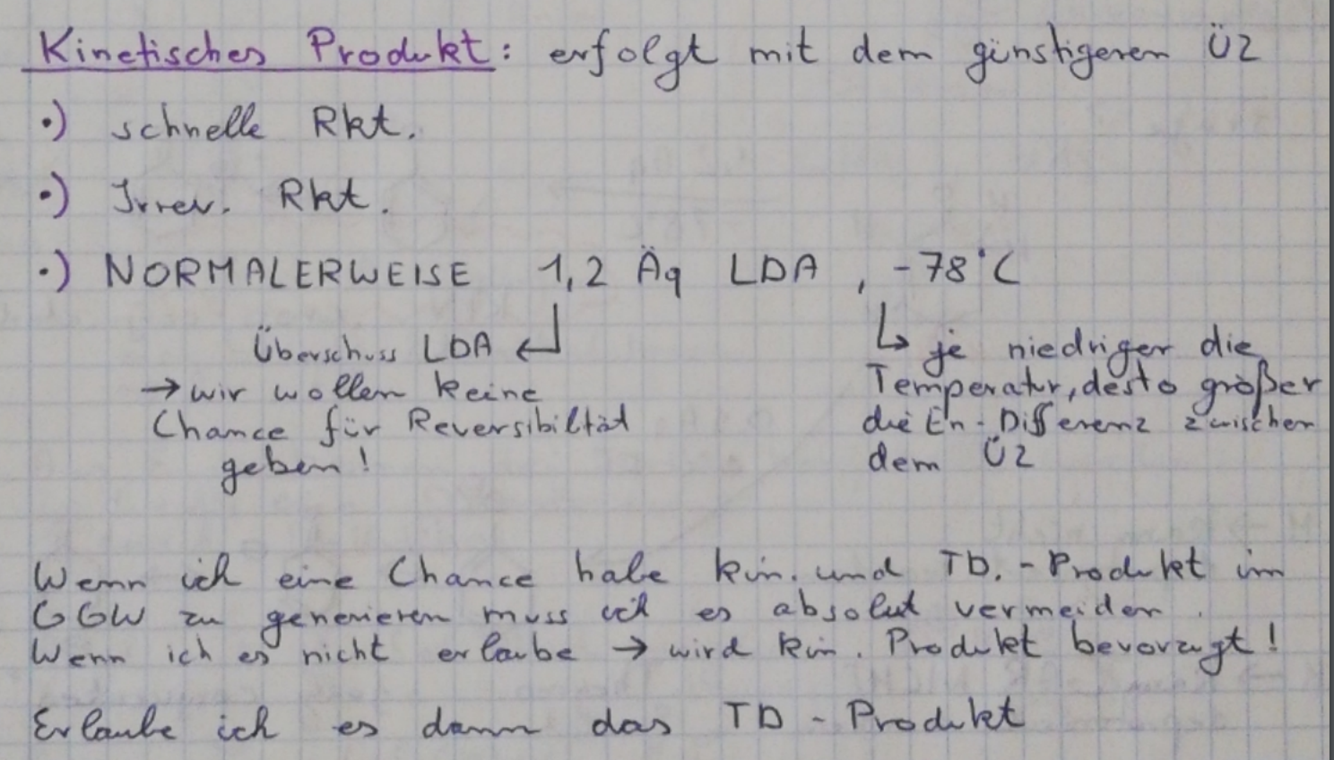 Kinetisches Produkt: erfolgt mit dem günstigeren ÜZ
•) schnelle Rkt.
•) Irrev. Rkt.
•) NORMALERWEISE 1,2 Äq LDA , -78°C
Überschuss LDA ↵
→ wir wollen keine
Chance für Reversibiltät
geben!
↳ je niedriger die
Temperatur, desto größer
die En-Differenz zwischen
dem ÜZ
Wenn ich eine Chance habe kin. und TD.-Produkt im
GGW zu generieren muss ich es absolut vermeiden.
Wenn ich es nicht erlaube → wird kin. Produkt bevorzugt!
Erlaube ich es dann das TD-Produkt